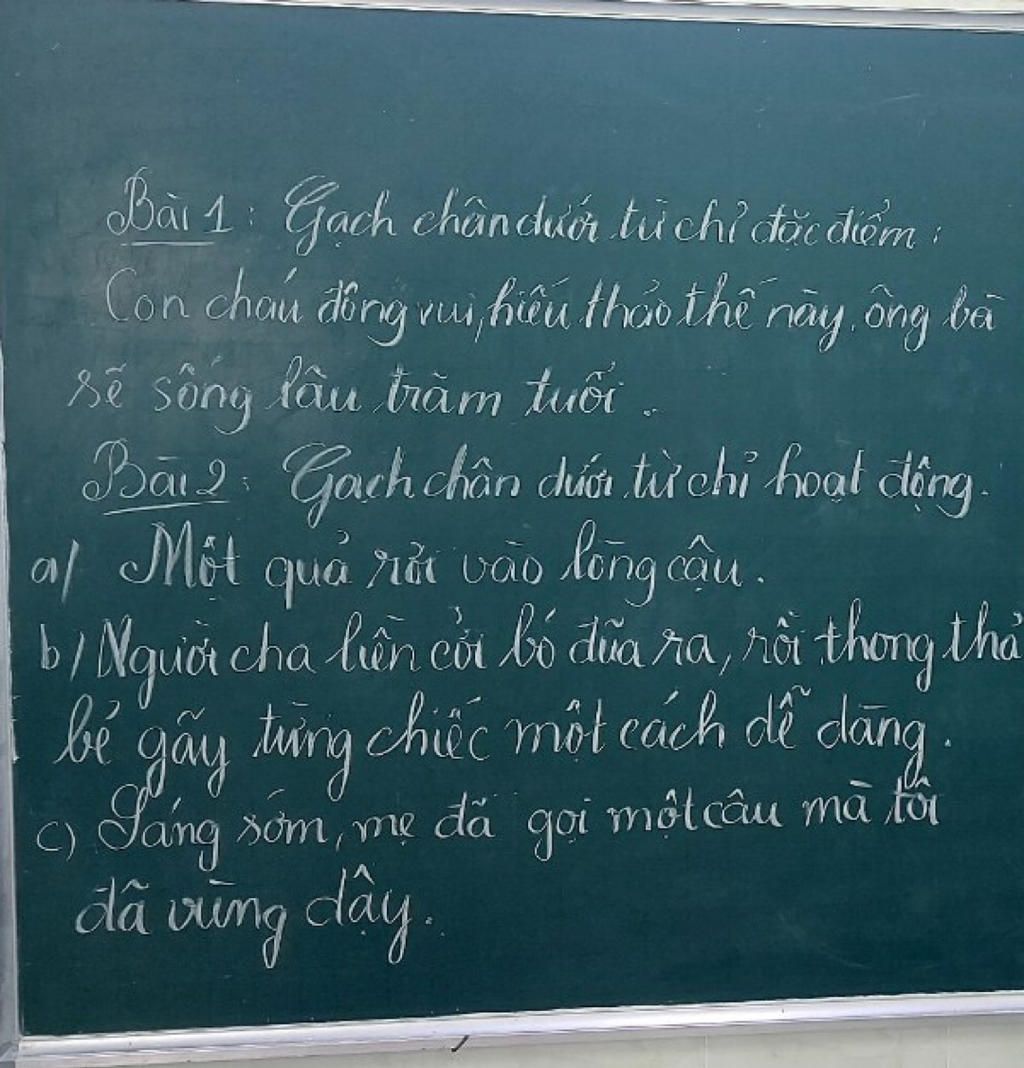 Bài 1: Gạch chân dưới từ chỉ đặc điểm:
Con cháu đông vui, hiếu thảo thế này, ông bà
sẽ sống lâu trăm tuổi.
Bài 2: Gạch chân dưới từ chỉ hoạt động.
a/ Một quả rơi vào lòng cậu.
b/ Người cha liền cởi bó đũa ra, rồi thong thả
bẻ gãy từng chiếc một cách dễ dàng.
c) Sáng sớm, mẹ đã gọi một câu mà tôi
đã vùng dậy.